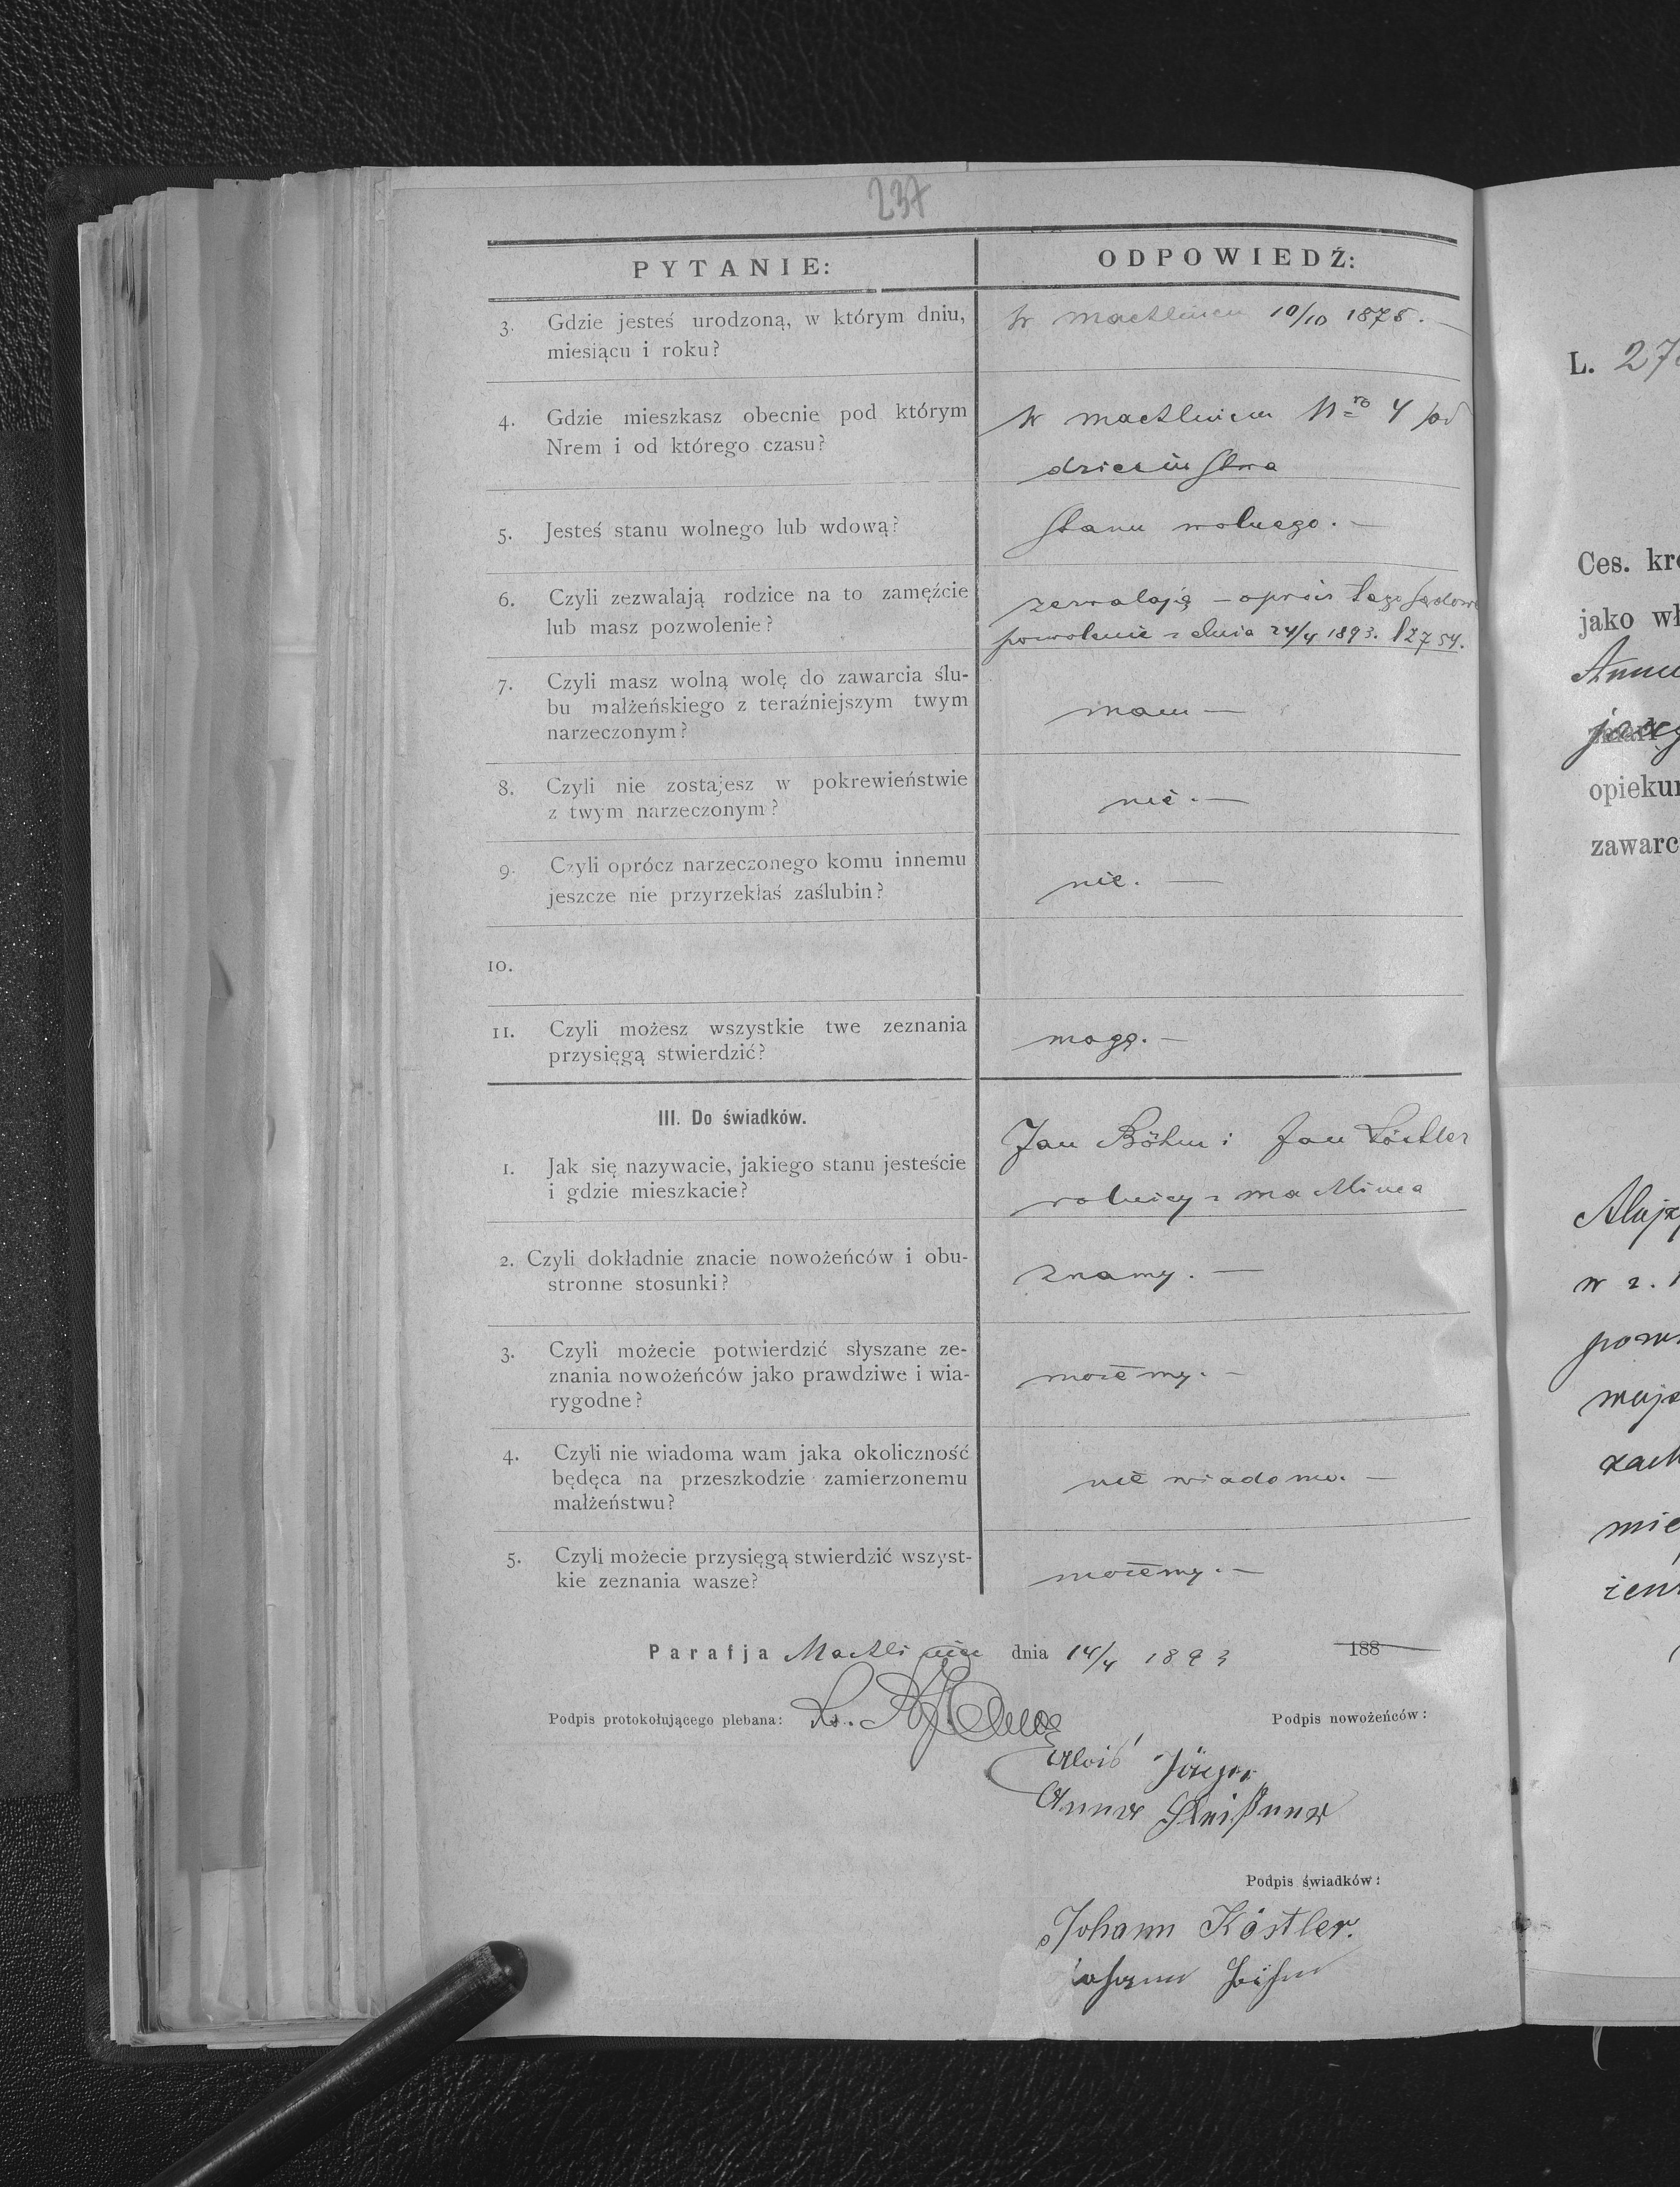 237
PYTANIE:
ODPOWIEDŹ:
3. Gdzie jesteś urodzoną, w którym dniu,
miesiącu i roku?
w Machlińcu 10/10 1875. —
4. Gdzie mieszkasz obecnie pod którym
Nrem i od którego czasu?
w Machlińcu Nro 4 od
dzieciństwa
5. Jesteś stanu wolnego lub wdową?
stanu wolnego. —
6. Czyli zezwalają rodzice na to zamęźcie
lub masz pozwolenie?
zezwalają — oprócz tego sądowe
pozwolenie z dnia 24/4 1893. l 2754.
7. Czyli masz wolną wolę do zawarcia ślu-
bu małżeńskiego z teraźniejszym twym
narzeczonym?
mam —
8. Czyli nie zostajesz w pokrewieństwie
z twym narzeczonym?
nie. —
9. Czyli oprócz narzeczonego komu innemu
jeszcze nie przyrzekłaś zaślubin?
nie. —
10.
11. Czyli możesz wszystkie twe zeznania
przysięgą stwierdzić?
mogę. —
III. Do świadków.
1. Jak się nazywacie, jakiego stanu jesteście
i gdzie mieszkacie?
Jan Böhm i Jan Köstler
rolnicy z Machlińca
2. Czyli dokładnie znacie nowożeńców i obu-
stronne stosunki?
znamy. —
3. Czyli możecie potwierdzić słyszane ze-
znania nowożeńców jako prawdziwe i wia-
rygodne?
możemy. —
4. Czyli nie wiadoma wam jaka okoliczność
będęca na przeszkodzie zamierzonemu
małżeństwu?
nie wiadoma. —
5. Czyli możecie przysięgą stwierdzić wszyst-
kie zeznania wasze?
możemy. —
Parafja Machliniec dnia 14/4 1893 188
Podpis protokołującego plebana: Ks.
Podpis nowożeńców:
Alois Jäger
Anna
Podpis świadków:
Johann Köstler.
Johann Böhm
L. 27
Ces. kr
jako wł
jąc
opieku
zawarc
Alojz
w r.
pow
mają
zach
mie
żen